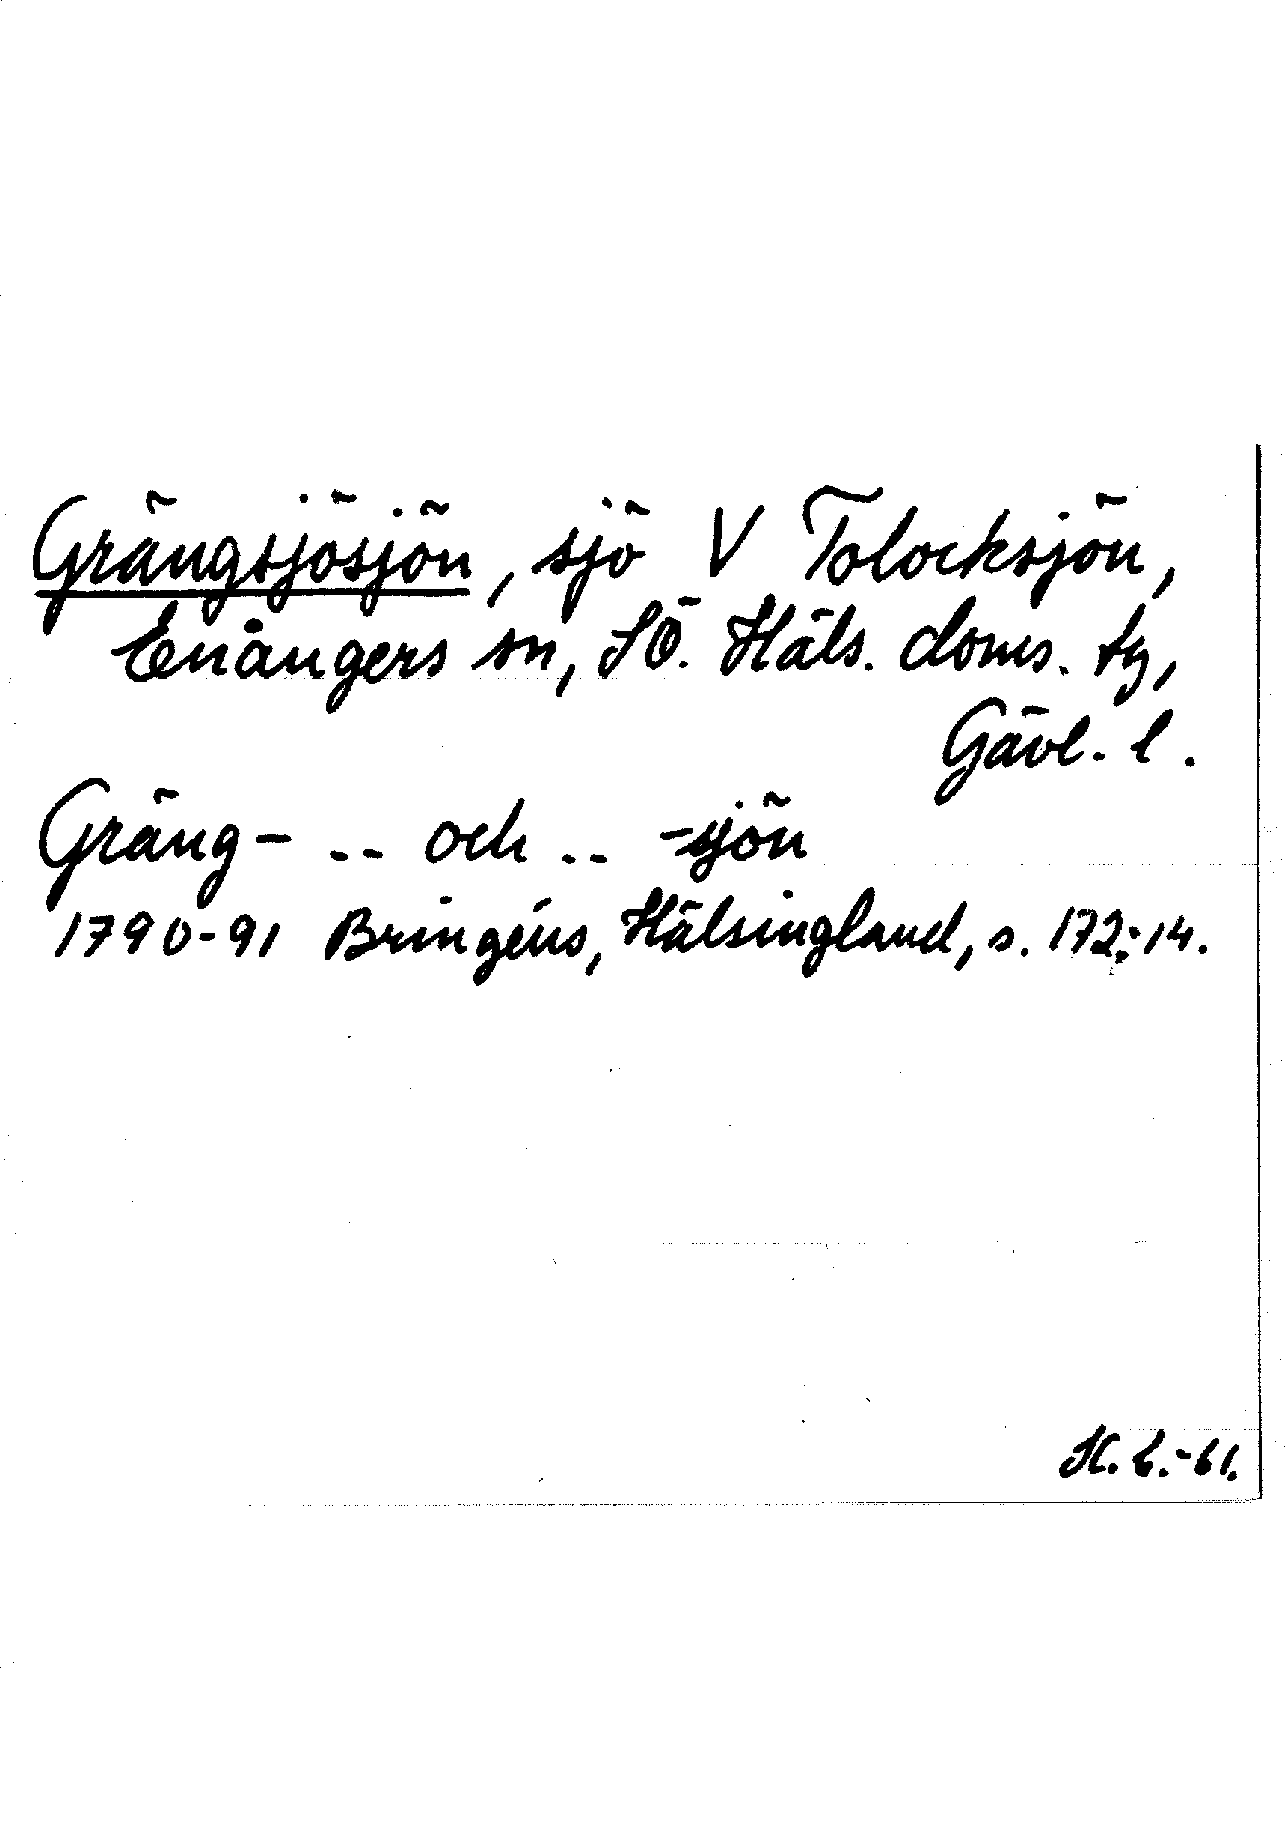 Grängsjösjön, sjö V Tolocksjön,
Enångers sn, SÖ. Häls. doms. tg,
Gävl. l.
Gräng- .-- och .-- -sjön
1790-91 Bringéus, Hälsingland, s. 172:14.
K. C.-61.